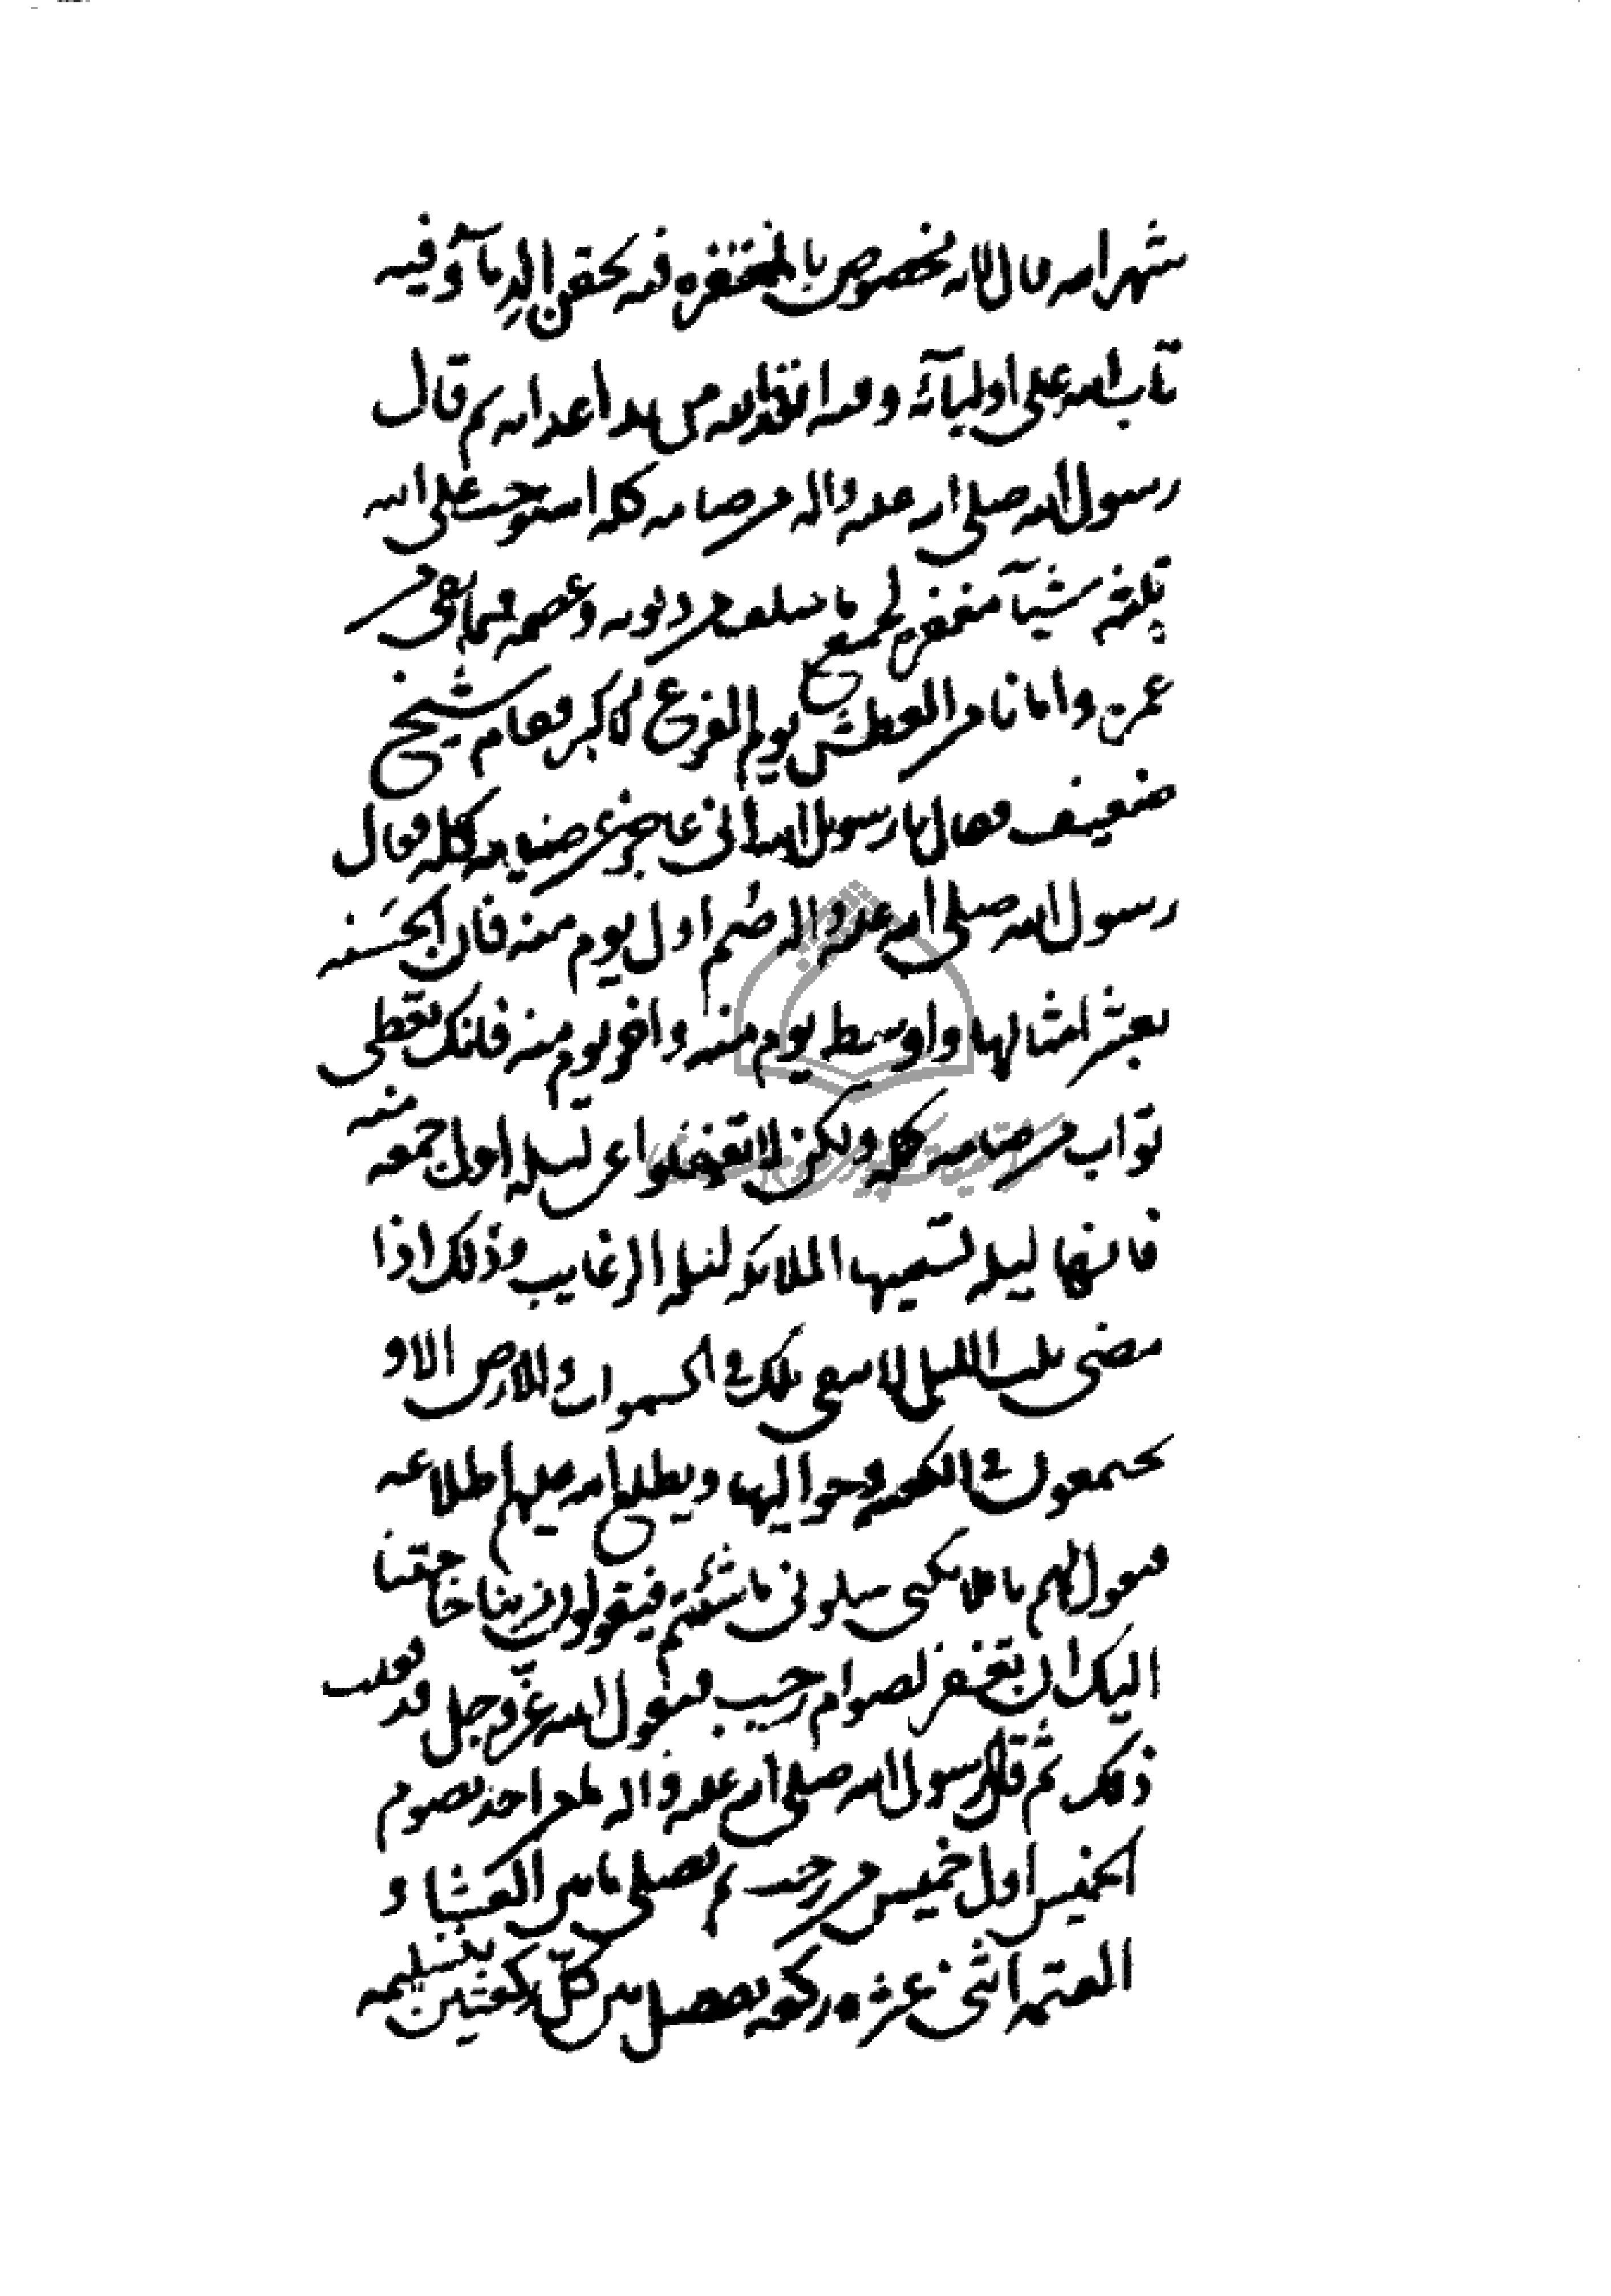 شهر الله قال لانه مخصوص بالمغفره فيه يحقن الدمآ وفيه
تاب الله على اوليآئه وفيه انقذهم من يد اعدائه ثم قال
رسول الله صلى الله عليه واله من صامه كله استوجب على الله
ثلثه شيآ مغفره لجميع ما سلف من ذنوبه وعصمه فيما بقى من
عمره وامانا من العطش يوم الفزع الاكبر فقام شيخ
ضعيف فقال يا رسول الله انى عاجز عن صيامه كله فقال
رسول الله صلى الله عليه واله صُم اول يوم منه فان الحَسَنه
بعشر امثالها واوسط يوم منه واخر يوم منه فانك تعطى
ثواب من صامه كله ولكن لا تغفلوا عن ليله اول جمعه منه
فانها ليله تسميها الملائكه ليله الرغايب وذلك اذا
مضى ثلث الليل لا يبقى ملك فى السموات والارض الا و
يجتمعون فى الكعبه وحواليها ويطلع الله عليهم اطلاعه
فيقول لهم يا ملائكتى سلونى ما شئتم فيقولون ربنا حاجتنا
اليك ان تغفر لصوام رجب فيقول الله عزّ وجل قد فعلت
ذلك ثم قال رسول الله صلى الله عليه واله ما من احد يصوم
الخميس اول خميس من رجب ثم يصلى ما بين العشاء و
العتمه اثنى عشره ركعه يفصل بين كلّ ركعتين بتسليمه